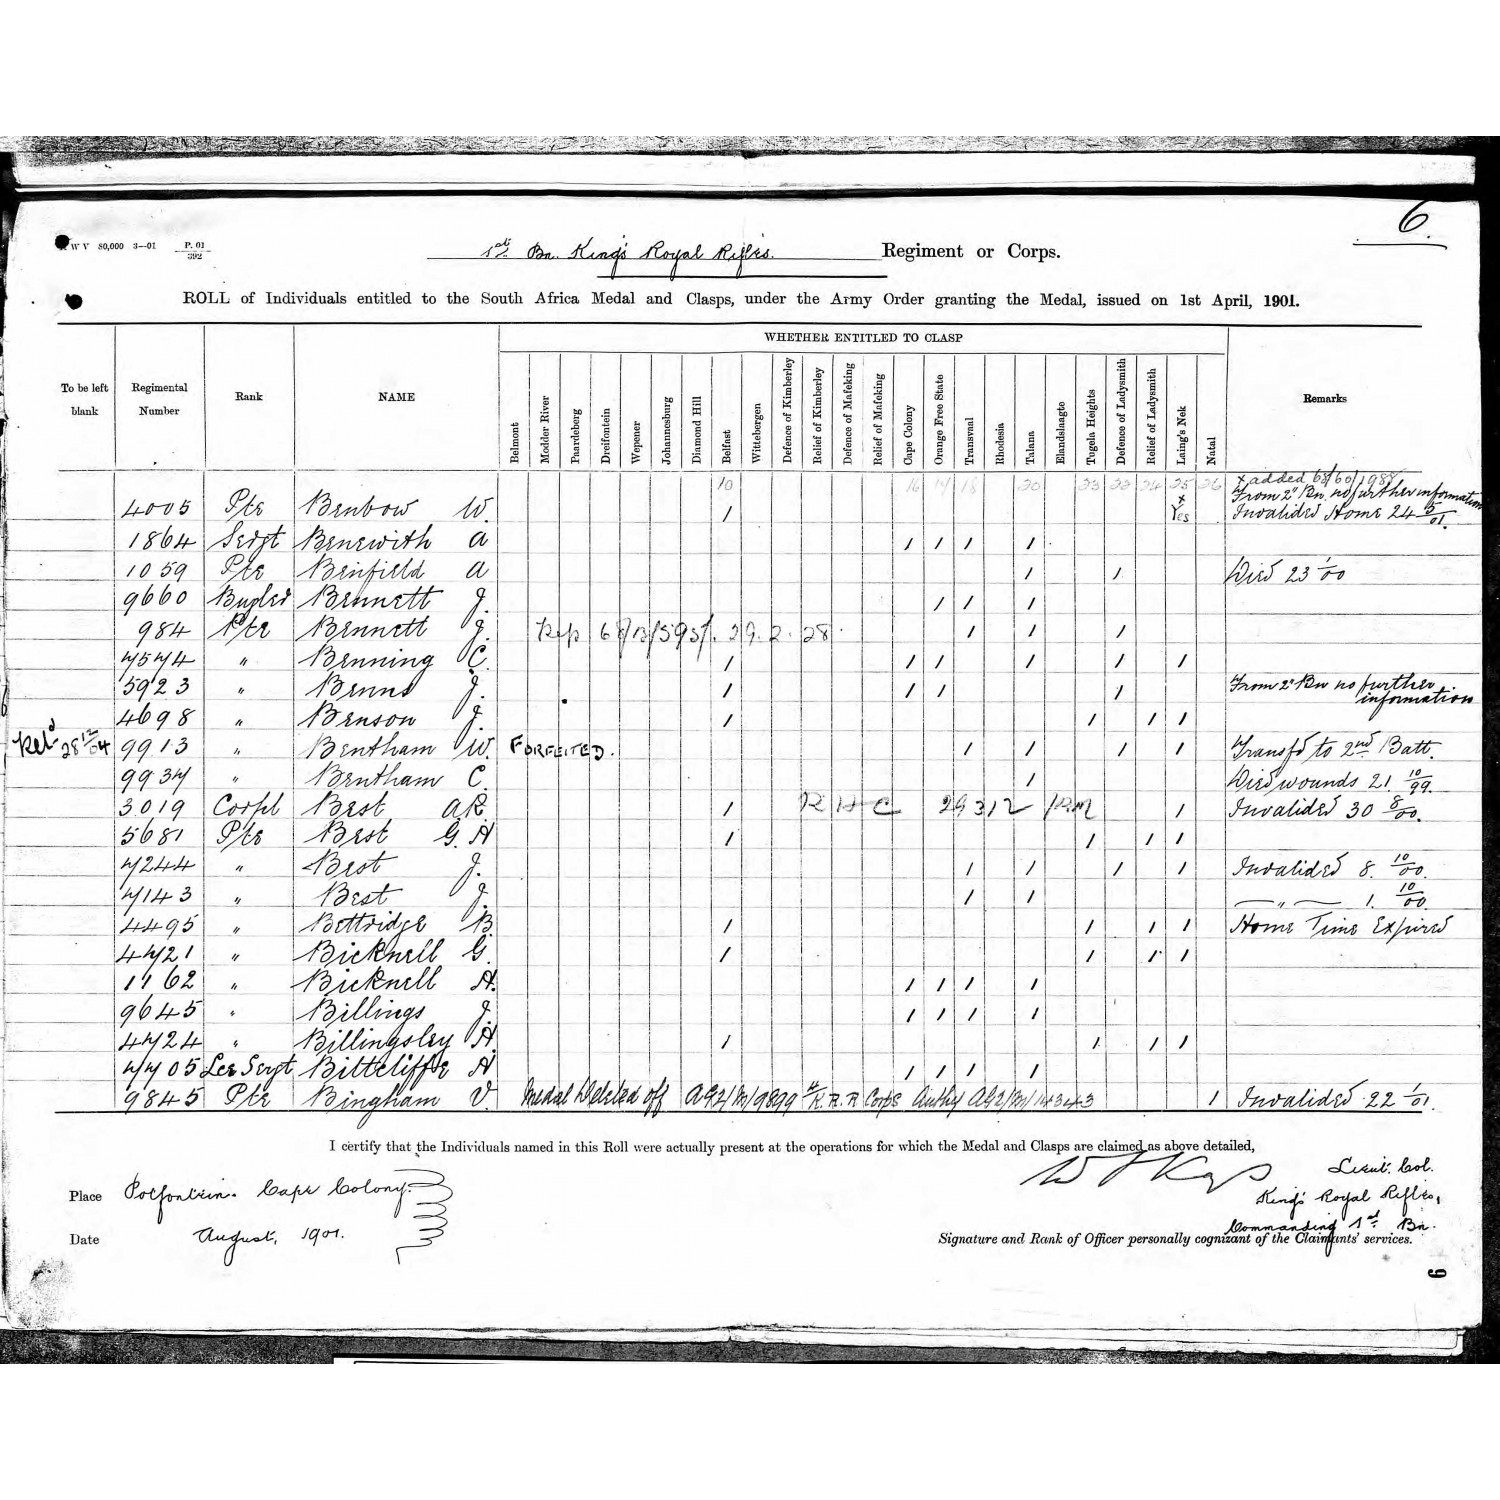 6.
W V 80,000 3—01 P. 01/392
1st Bn. King's Royal Rifles. Regiment or Corps.
ROLL of Individuals entitled to the South Africa Medal and Clasps, under the Army Order granting the Medal, issued on 1st April, 1901.
WHETHER ENTITLED TO CLASP
To be left blank
Regimental Number
Rank
NAME
Belmont
Modder River
Paardeberg
Dreifontein
Wepener
Johannesburg
Diamond Hill
Belfast
Wittebergen
Defence of Kimberley
Relief of Kimberley
Defence of Mafeking
Relief of Mafeking
Cape Colony
Orange Free State
Transvaal
Rhodesia
Talana
Elandslaagte
Tugela Heights
Defence of Ladysmith
Relief of Ladysmith
Laing's Nek
Natal
Remarks
10 16 17 18 20 23 22 24 25 26 x added 68/60/1988
4005 Pte Benbow W. / x Yes From 2" Bn. no further information Invalided Home 24 5/01.
1864 Sergt Benewith A / / / /
1059 Pte Benfield A / / Died 23 1/00
9660 Bugler Bennett J. / / /
984 Pte Bennett J. Rep 68/13/595/. 29. 2. 28. / / /
7574 " Benning C. / / / / / /
5923 " Benns J. / / / / From 2" Bn no further information
4698 " Benson J. / / / /
Ret'd 28 12/04 9913 " Bentham W. FORFEITED. / / / / Transfd to 2nd Batt.
9937 " Bentham C. / Died wounds 21. 10/99.
3019 Corpl Best A R. / R H C 29312 / Invalided 30 8/00.
5681 Pte Best G. H / / / /
7244 " Best J. / / / / Invalided 8. 10/00.
7143 " Best J. / / — " — 1. 10/00.
4495 " Bettridge B. / / / / Home Time Expired
4721 " Bicknell G. / / / /
1162 " Bicknell H. / / / /
9645 " Billings J. / / / /
4724 " Billingsley H. / / / /
7705 Lce Sergt Bittcliffe H / / / /
9845 Pte Bingham V. Medal Deleted off AG2/M/9899 K.R.R Corps Authy AG2/M/14343 / Invalided 22 1/01.
I certify that the Individuals named in this Roll were actually present at the operations for which the Medal and Clasps are claimed as above detailed,
Place Potfontein. Cape Colony.
Date August, 1901.
Lieut. Col.
King's Royal Rifles,
Commanding 1st Bn.
Signature and Rank of Officer personally cognizant of the Claimants' services.
6